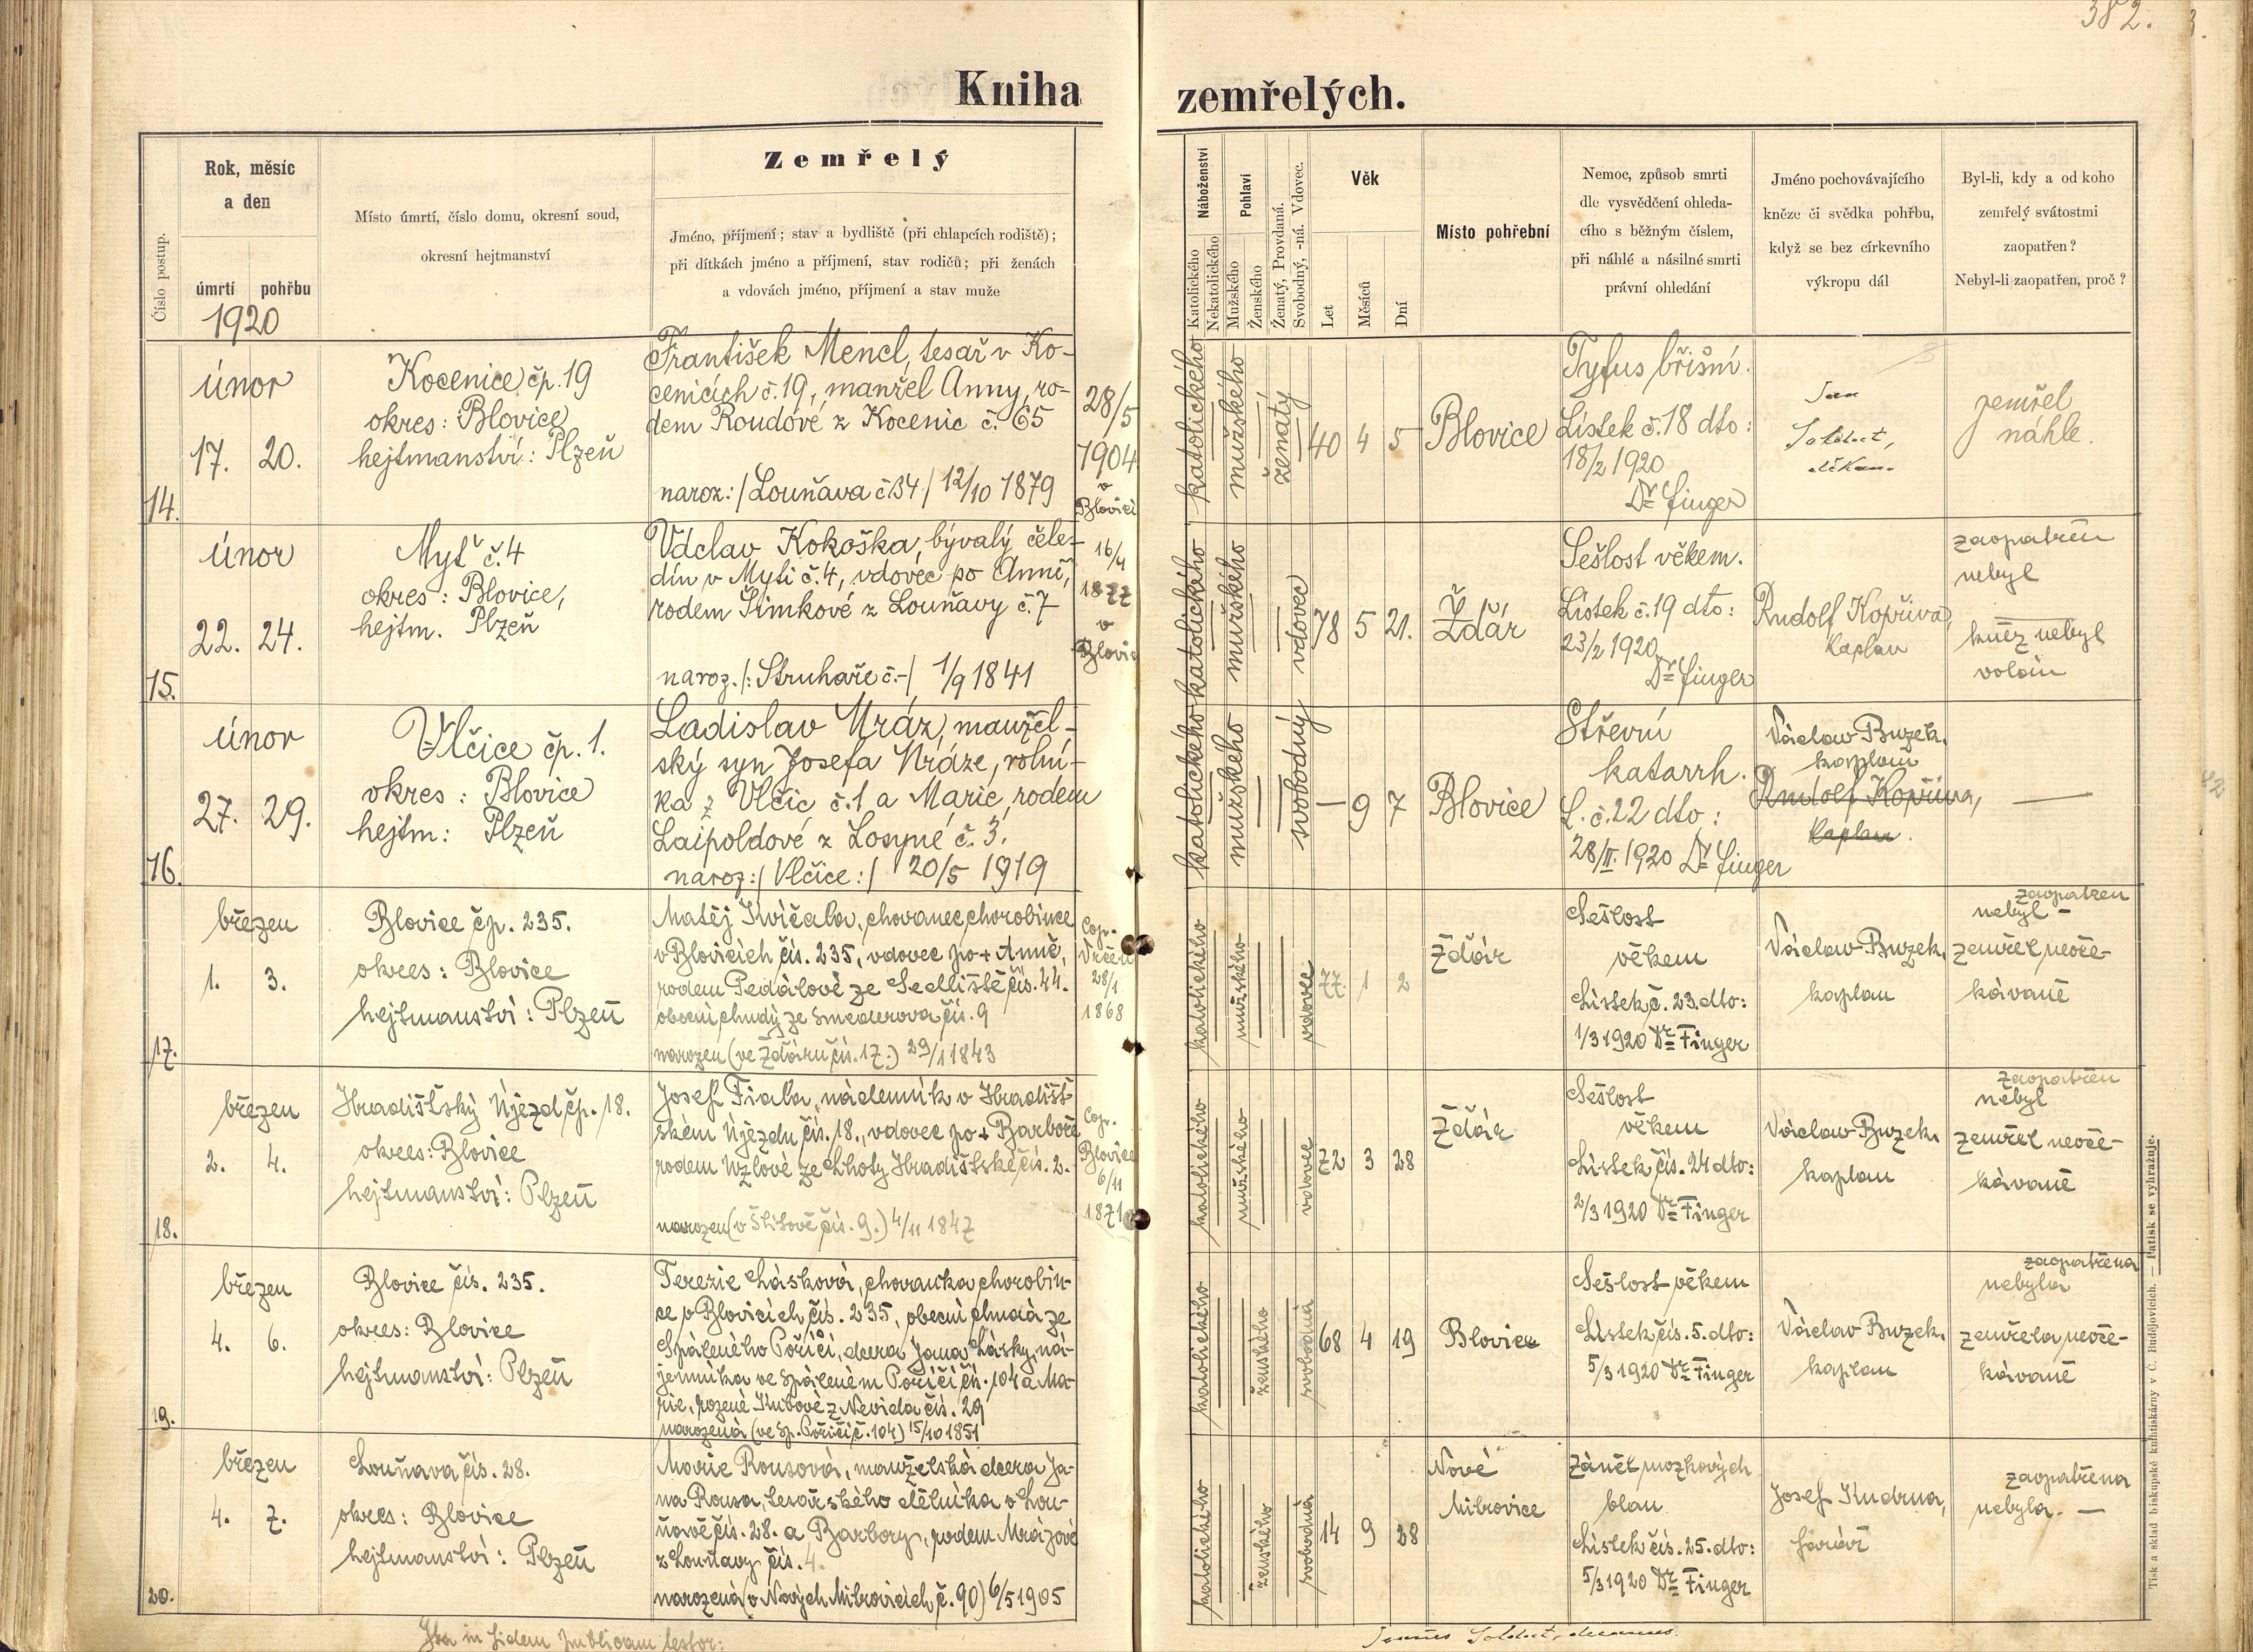 382.
Kniha zemřelých.
Číslo postup.
Rok, měsíc
a den
úmrtí pohřbu
1920
Místo úmrtí, číslo domu, okresní soud,
okresní hejtmanství
Zemřelý
Jméno, příjmení; stav a bydliště (při chlapcích rodiště);
při dítkách jméno a příjmení, stav rodičů; při ženách
a vdovách jméno, příjmení a stav muže
Náboženství
Katolického
Nekatolického
Pohlaví
Mužského
Ženského
Ženatý, Provdaná.
Svobodný, -ná. Vdovec.
Věk
Let
Měsíců
Dní
Místo pohřební
Nemoc, způsob smrti
dle vysvědčení ohleda-
cího s běžným číslem,
při náhlé a násilné smrti
právní ohledání
Jméno pochovávajícího
kněze či svědka pohřbu,
když se bez církevního
výkropu dál
Byl-li, kdy a od koho
zemřelý svátostmi
zaopatřen?
Nebyl-li zaopatřen, proč?
14.
únor
17. 20.
Kocenice čp. 19
okres: Blovice
hejtmanství: Plzeň
František Mencl, tesař v Ko-
cenicích č. 19, manžel Anny, ro-
dem Roudové z Kocenic č. 65
naroz: /Louňava č 34/ 12/10 1879
28/5
1904
v
Blovicí
katolického
mužského
ženatý
40 4 5
Blovice
Tyfus břišní.
Lístek č. 18 dto:
18/2 1920
Dr Finger
Jan
Soldát,
děkan.
zemřel
náhle.
15.
únor
22. 24.
Myť č. 4
okres: Blovice,
hejtm. Plzeň
Václav Kokoška, bývalý čele-
dín v Myti č. 4, vdovec po Anně,
rodem Šimkové z Louňavy č. 7
naroz. /: Struhaře č.-/ 1/9 1841
16/4
1877
v
Blovic
katolického
mužského
vdovec
78 5 21.
Žďár
Sešlost věkem.
Lístek č. 19 dto:
23/2 1920
Dr Finger
Rudolf Kopřiva,
kaplan
zaopatřen
nebyl
kněz nebyl
volán
16.
únor
27. 29.
Vlčice čp. 1.
okres: Blovice
hejtm: Plzeň
Ladislav Mráz, manžel-
ský syn Josefa Mráze, rolní-
ka z Vlčic č. 1 a Marie, rodem
Laipoldové z Losyné č. 3.
naroz: / Vlčice: / 20/5 1919
katolického
mužského
svobodný
— 9 7
Blovice
Střevní
katarrh.
L. č. 22 dto:
28/II. 1920 Dr Finger
Václav Buzek,
kaplan
Rudolf Kopřiva,
kaplan.
—
17.
březen
1. 3.
Blovice čp. 235.
okres: Blovice
hejtmanství: Plzeň
Matěj Kvíčala, chovanec chorobince
v Blovicích čís. 235, vdovec po + Anně,
rodem Pedálové ze Sedliště čís. 44.
obecní chudý ze Smederova čís. 9
narozen (ve Žďáru čís. 17.) 29/1 1843
Cop.
Vrčeň
28/1
1868
katolického
mužského
vdovec
77. 1 2
Žďár
Sešlost
věkem
Lístek č. 23. dto:
1/3 1920 Dr Finger
Václav Buzek,
kaplan
zaopatřen
nebyl —
zemřel neoče-
kávaně
18.
březen
2. 4.
Hradišťský Újezd čp. 18.
okres: Blovice
hejtmanství: Plzeň
Josef Fiala, nádenník v Hradišť-
ském Újezdu čís. 18., vdovec po + Barboře
rodem Uzlové ze Lhoty Hradišťské čís. 2.
narozen (v Štítově čís. 9.) 4/11 1847
Cop.
Blovice
6/11
1871
katolického
mužského
vdovec
72 3 28
Žďár
Sešlost
věkem
Lístek čís. 24 dto:
2/3 1920 Dr Finger
Václav Buzek,
kaplan
zaopatřen
nebyl
zemřel neoče-
kávaně
19.
březen
4. 6.
Blovice čís. 235.
okres: Blovice
hejtmanství: Plzeň
Terezie Lásková, chovanka chorobin-
ce v Blovicích čís. 235, obecní chudá ze
Spáleného Poříčí, dcera Jana Lásky, ná-
jemníka ve Spáleném Poříčí čís. 104 a Ma-
rie, rozené Kubové z Nevida čís. 29
narozená (ve Sp. Poříčí č. 104) 15/10 1851
katolického
ženského
svobodná
68 4 19
Blovice
Sešlost věkem
Lístek čís. 5. dto:
5/3 1920 Dr Finger
Václav Buzek,
kaplan
zaopatřena
nebyla
zemřela neoče-
kávaně
20.
březen
4. 7.
Louňava čís. 28.
okres: Blovice
hejtmanství: Plzeň
Marie Rousová, manželská dcera Ja-
na Rousa, tesařského dělníka v Lou-
ňavě čís. 28. a Barbory, rodem Mrázové
z Louňavy čís. 4.
narozená (v Nových Mitrovicích č. 90) 6/5 1905
katolického
ženského
svobodná
14 9 28
Nové
Mitrovice
Zánět mozkových
blan
Lístek čís. 25. dto:
5/3 1920 Dr Finger
Josef Kudrna,
farář
zaopatřena
nebyla. —
Ita in fidem publicam testor:
Joannes Soldát, decanus.
Tisk a sklad biskupské knihtiskárny v Č. Budějovicích. — Patisk se vyhražuje.